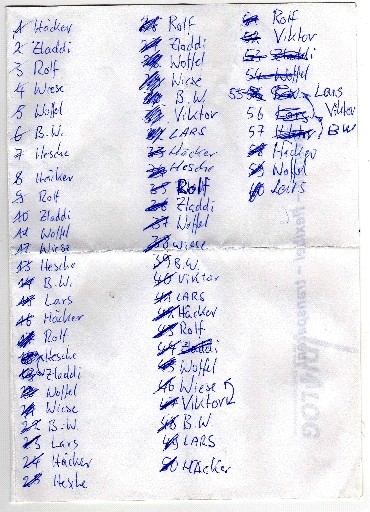 1 Häcker
2 Zladdi
3 Rolf
4 Wiese
5 Woffel
6 B.W.
7 Hesche
8 Häcker
9 Rolf
10 Zladdi
11 Woffel
12 Wiese
13 Hesche
14 B.W.
Lars
16 Häcker
Rolf
Hesche
Zladdi
Woffel
Wiese
22 B.W.
23 Lars
24 Häcker
25 Hesche
Rolf
Zladdi
Woffel
Wiese
B.W.
Viktor
LARS
Häcker
Hesche
Rolf
Zladdi
37 Woffel
Wiese
39 B.W.
40 Viktor
41 LARS
Häcker
43 Rolf
44 Zladdi
45 Woffel
46 Wiese
47 Viktor
48 B.W.
49 LARS
50 Häcker
Rolf
52 Viktor
53 Zladdi
54 Woffel
55 B.W. Lars
56 Lars Viktor
57 Viktor BW
58 Häcker
59 Woffel
60 LARS